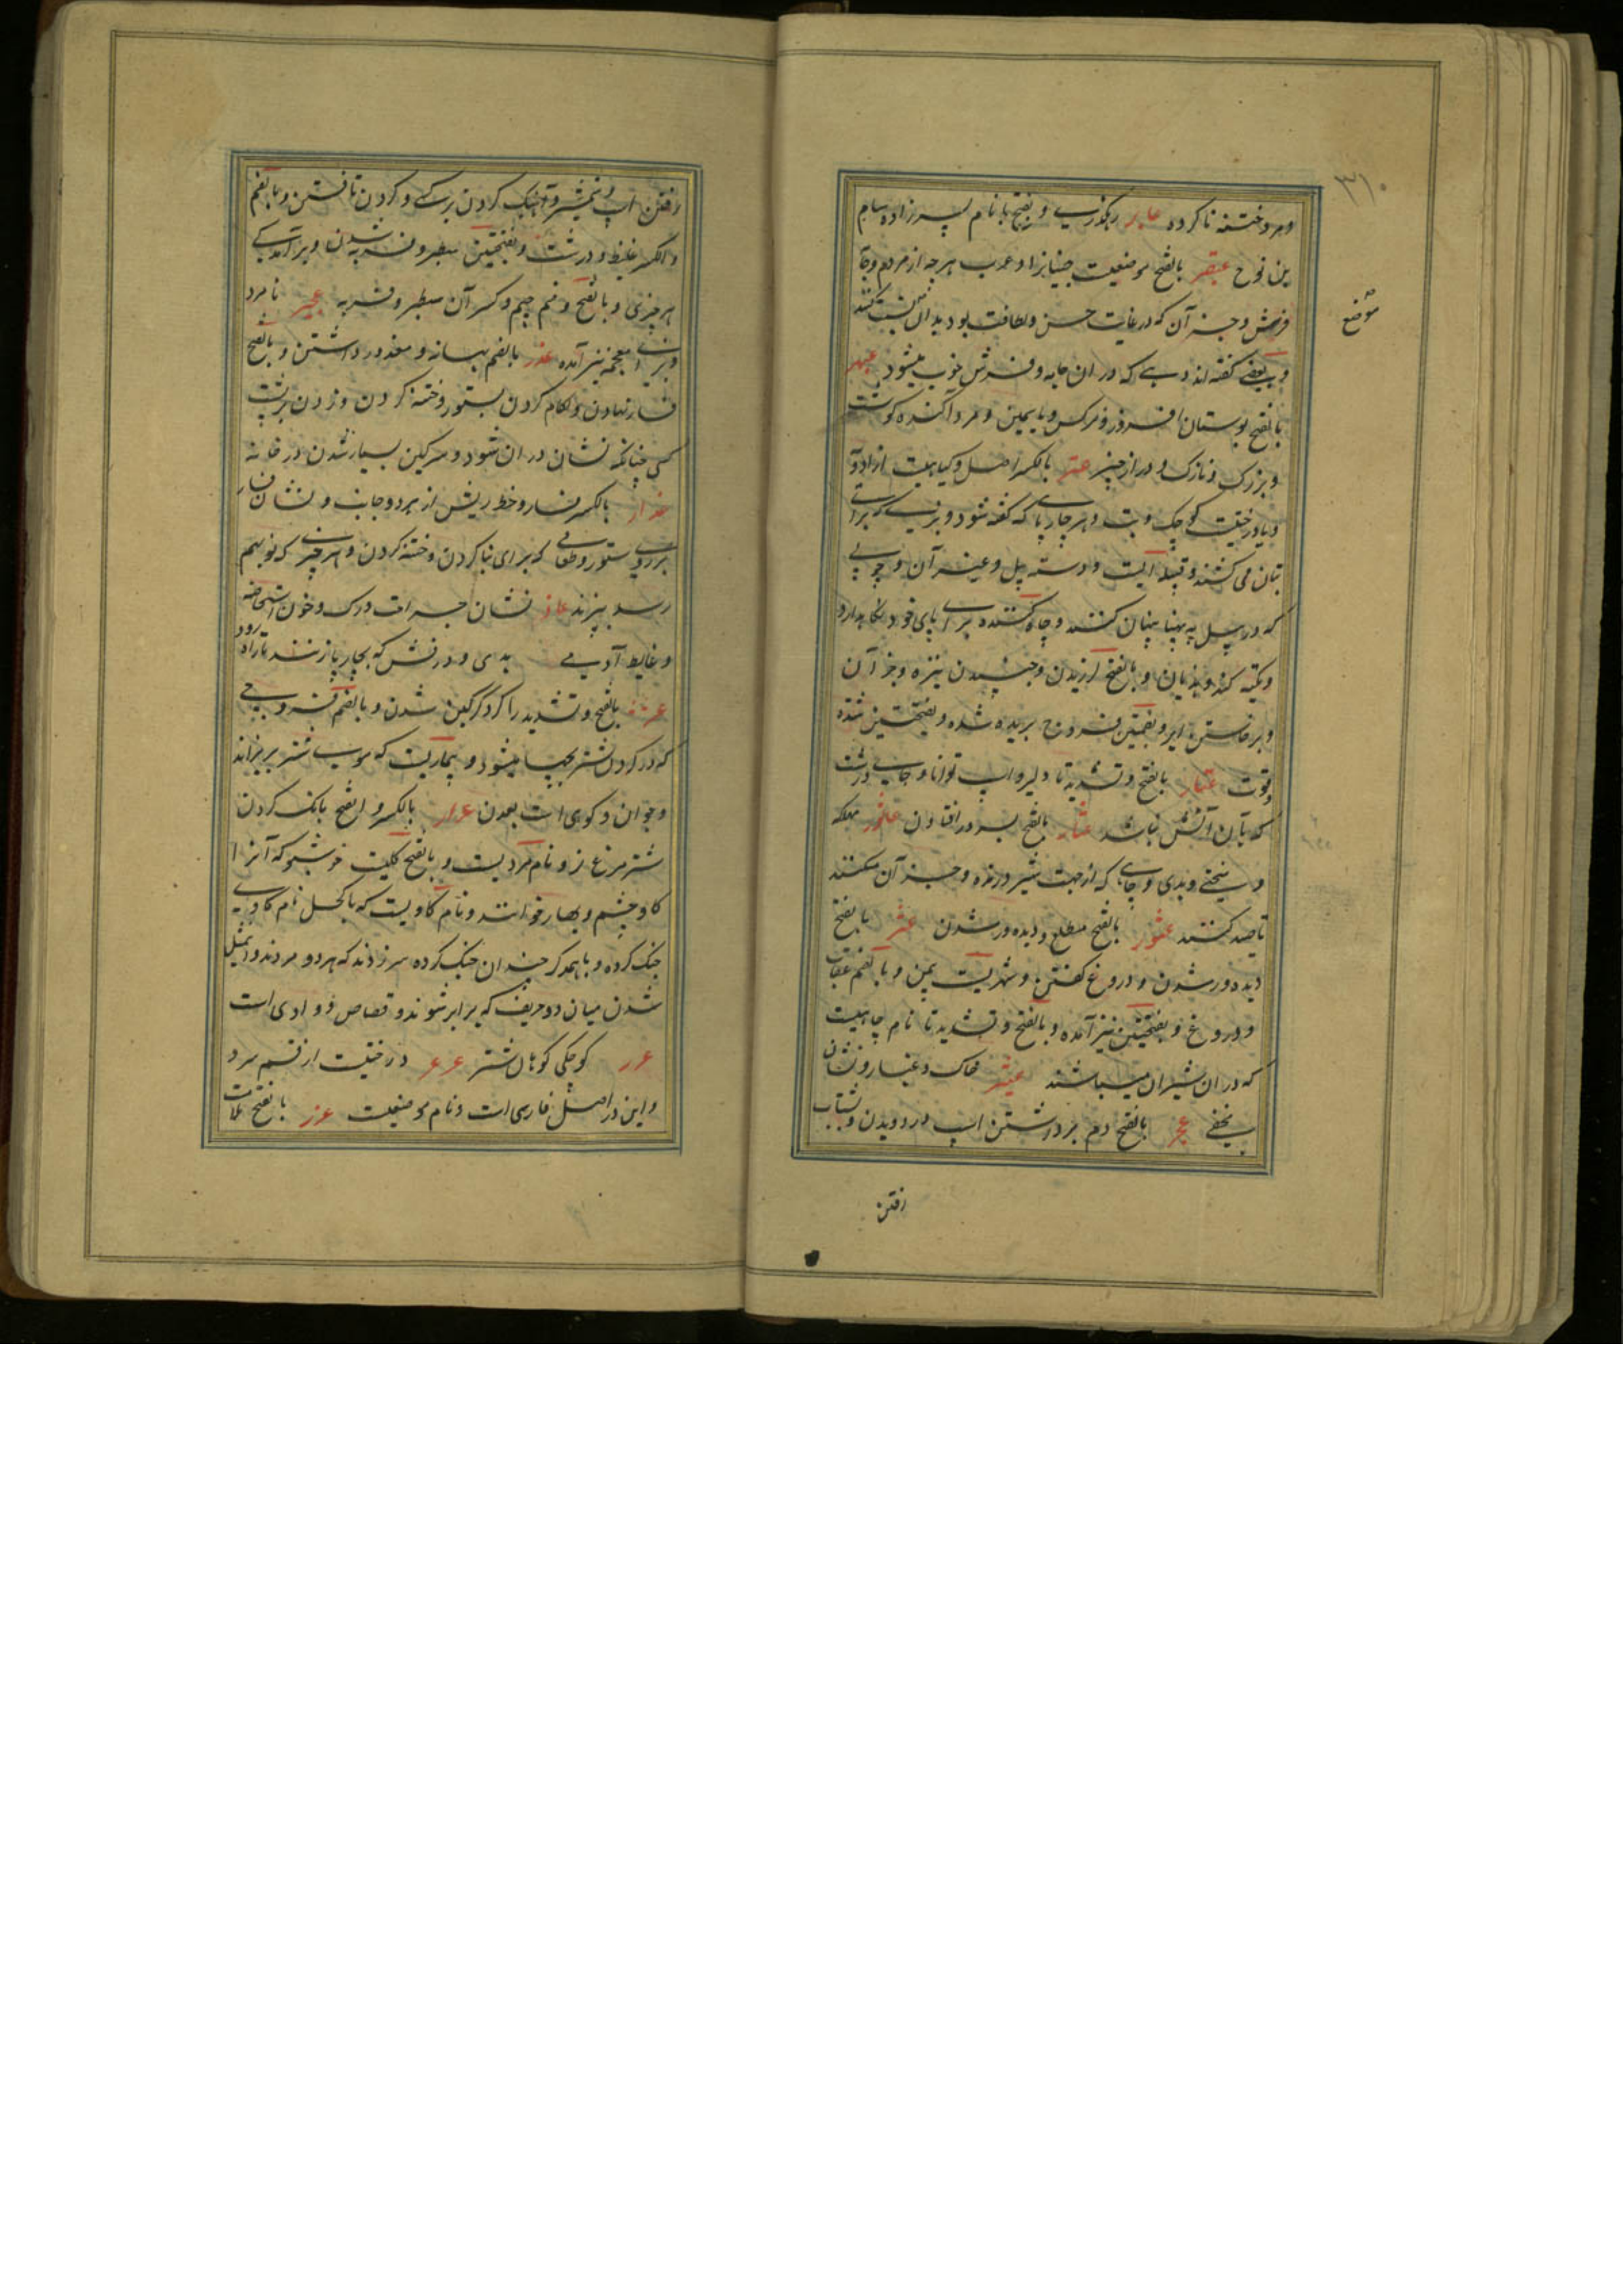 ۳۱۰
و مرد ختنه ناکرده عابر رهگذری و بفتح با نام پسرزاده سام
بن نوح عبقر بالفتح موضعیست جنیانرا و عرب هرچه از مردم و جامه
فرش و جز آن که در غایت حسن و لطافت بود بدان نسبت کنند
موضع
و بعضی گفته اند دهی که در ان جامه و فرش خوب میشود عبهر
بالفتح بوستان افروز و نرکس و یاسمین و مرد آکنده گوشت
و بزرک و نازک و دراز هر چیز عتر بالکسر اصل و کیاهیست از ادویه
و یا درختیست کوچک و بت و هر چارپای که کشته شود و بزی که برای
بتان می کشند و قبیله ایست و دسته بیل و غیر آن و چوبی
که در بیل به پهنا پنهان کنند و چاه کننده برای پای خود نگاهدارد
و تکیه کند و هذیان و بالفتح لرزیدن و جنبیدن نیزه و جز آن
و برخاستن ایر و بضمتین فروج بریده شده و بفتحتین شده
و قوت عتار بالفتح و تشدید تا دلیر و اسپ توانا و جای درشت
که بآن آتش نباشد عثار بالفتح بسر در افتادن عاثور مهلکه
و سختی و بدی و چاهی که از جهت شیر درنده و جز آن میکنند
تا صید کنند عثور بالفتح مطلع و دیده ور شدن عثر بالفتح
دیده ور شدن و دروغ گفتن و شهریست بیمن و بالضم عقاب
و دروغ و بفتحتین نیز آمده و بالفتح و تشدید تا نام جاییست
که در ان شیران میباشند عیثر خاک و غبار و نشان
یخفی عجر بالفتح دم برداشتن اسپ در دویدن و بشتاب
رفتن
رفتن اسپ و بشمشیر آهنگ کردن بر کسی و کردن تافتن و بالضم
و الکسر غلیظ و درشت و بفتحتین سطبر و فربه شدن و برآمدگی
هر چیزی و بالفتح و ضم جیم و کسر آن سطبر و فربه عجیر نامرد
و بزای معجمه نیز آمده عذر بالضم بهانه و معذور داشتن و بالفتح
فسار نهادن و لگام کردن بستور و ختنه کردن و زدن بر پشت
کسی چنانکه نشان در ان شود و سرکین بسیار شدن در خانه
عذار بالکسر فسار و خط ریش از هر دو جانب و نشان فسار
بر روی ستور و طعامی که برای بنا کردن و ختنه کردن و هر چیزی که نو بهم
رسد بپزند عاذر نشان جراحت و رک و خون استحاضه
و غایط آدمی بدی و درفش که بچارپا زنند تا زود رود
عر بالفتح و تشدید را کر و کرکین شدن و بالضم قروحی
که در کردن شتر بچها میشود و بیماریست که موی شتر بریزاند
و جوان و کوهی است بعدن عرار بالکسر و الفتح بانک کردن
شترمرغ نر و نام مردیست و بالفتح کلیست خوشبو که آنرا
کاوچشم و بهار خوانند و نام گاویست که با کحل نام کاوی
جنک کرده و باهمدکر چندان جنک کرده سر زدند که هر دو مردند و تمثیل
شدن میان دو حریف که برابر شوند و قصاص و وادی است
عرر کوچکی کوهان شتر عرعر درختیست از قسم سرو
و این در اصل فارسی است و نام موضعیست عزر بالفتح ملامت